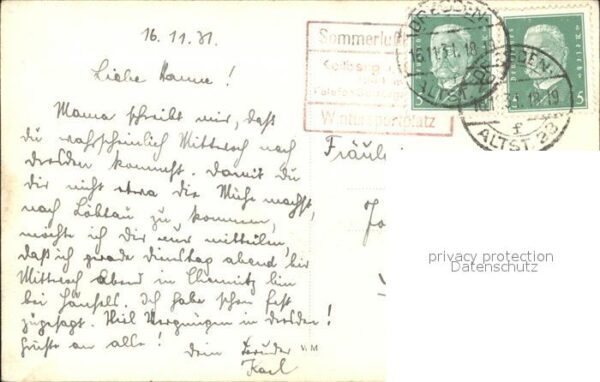 16.11.31.
Liebe Hanne!
Mama schreibt mir, daß
du wahrscheinlich Mittwoch nach
Dresden kommst. Damit du
dir nicht etwa die Mühe machst,
nach Löbtau zu kommen,
möchte ich dir nur mitteilen,
daß ich gerade dienstag abend bis
Mittwoch Abend in Chemnitz bin
bei Hänsels. Ich habe schon fest
zugesagt. Viel Vergnügen in dresden!
Grüße an alle!
dein Bruder
Karl
V.M
Sommerluft
Wintersportplatz
DRESDEN
16.11.31.18-19
ALTST.
5
DRESDEN
31.18-19
f
ALTST. 23
5
Fräulein
privacy protection
Datenschutz